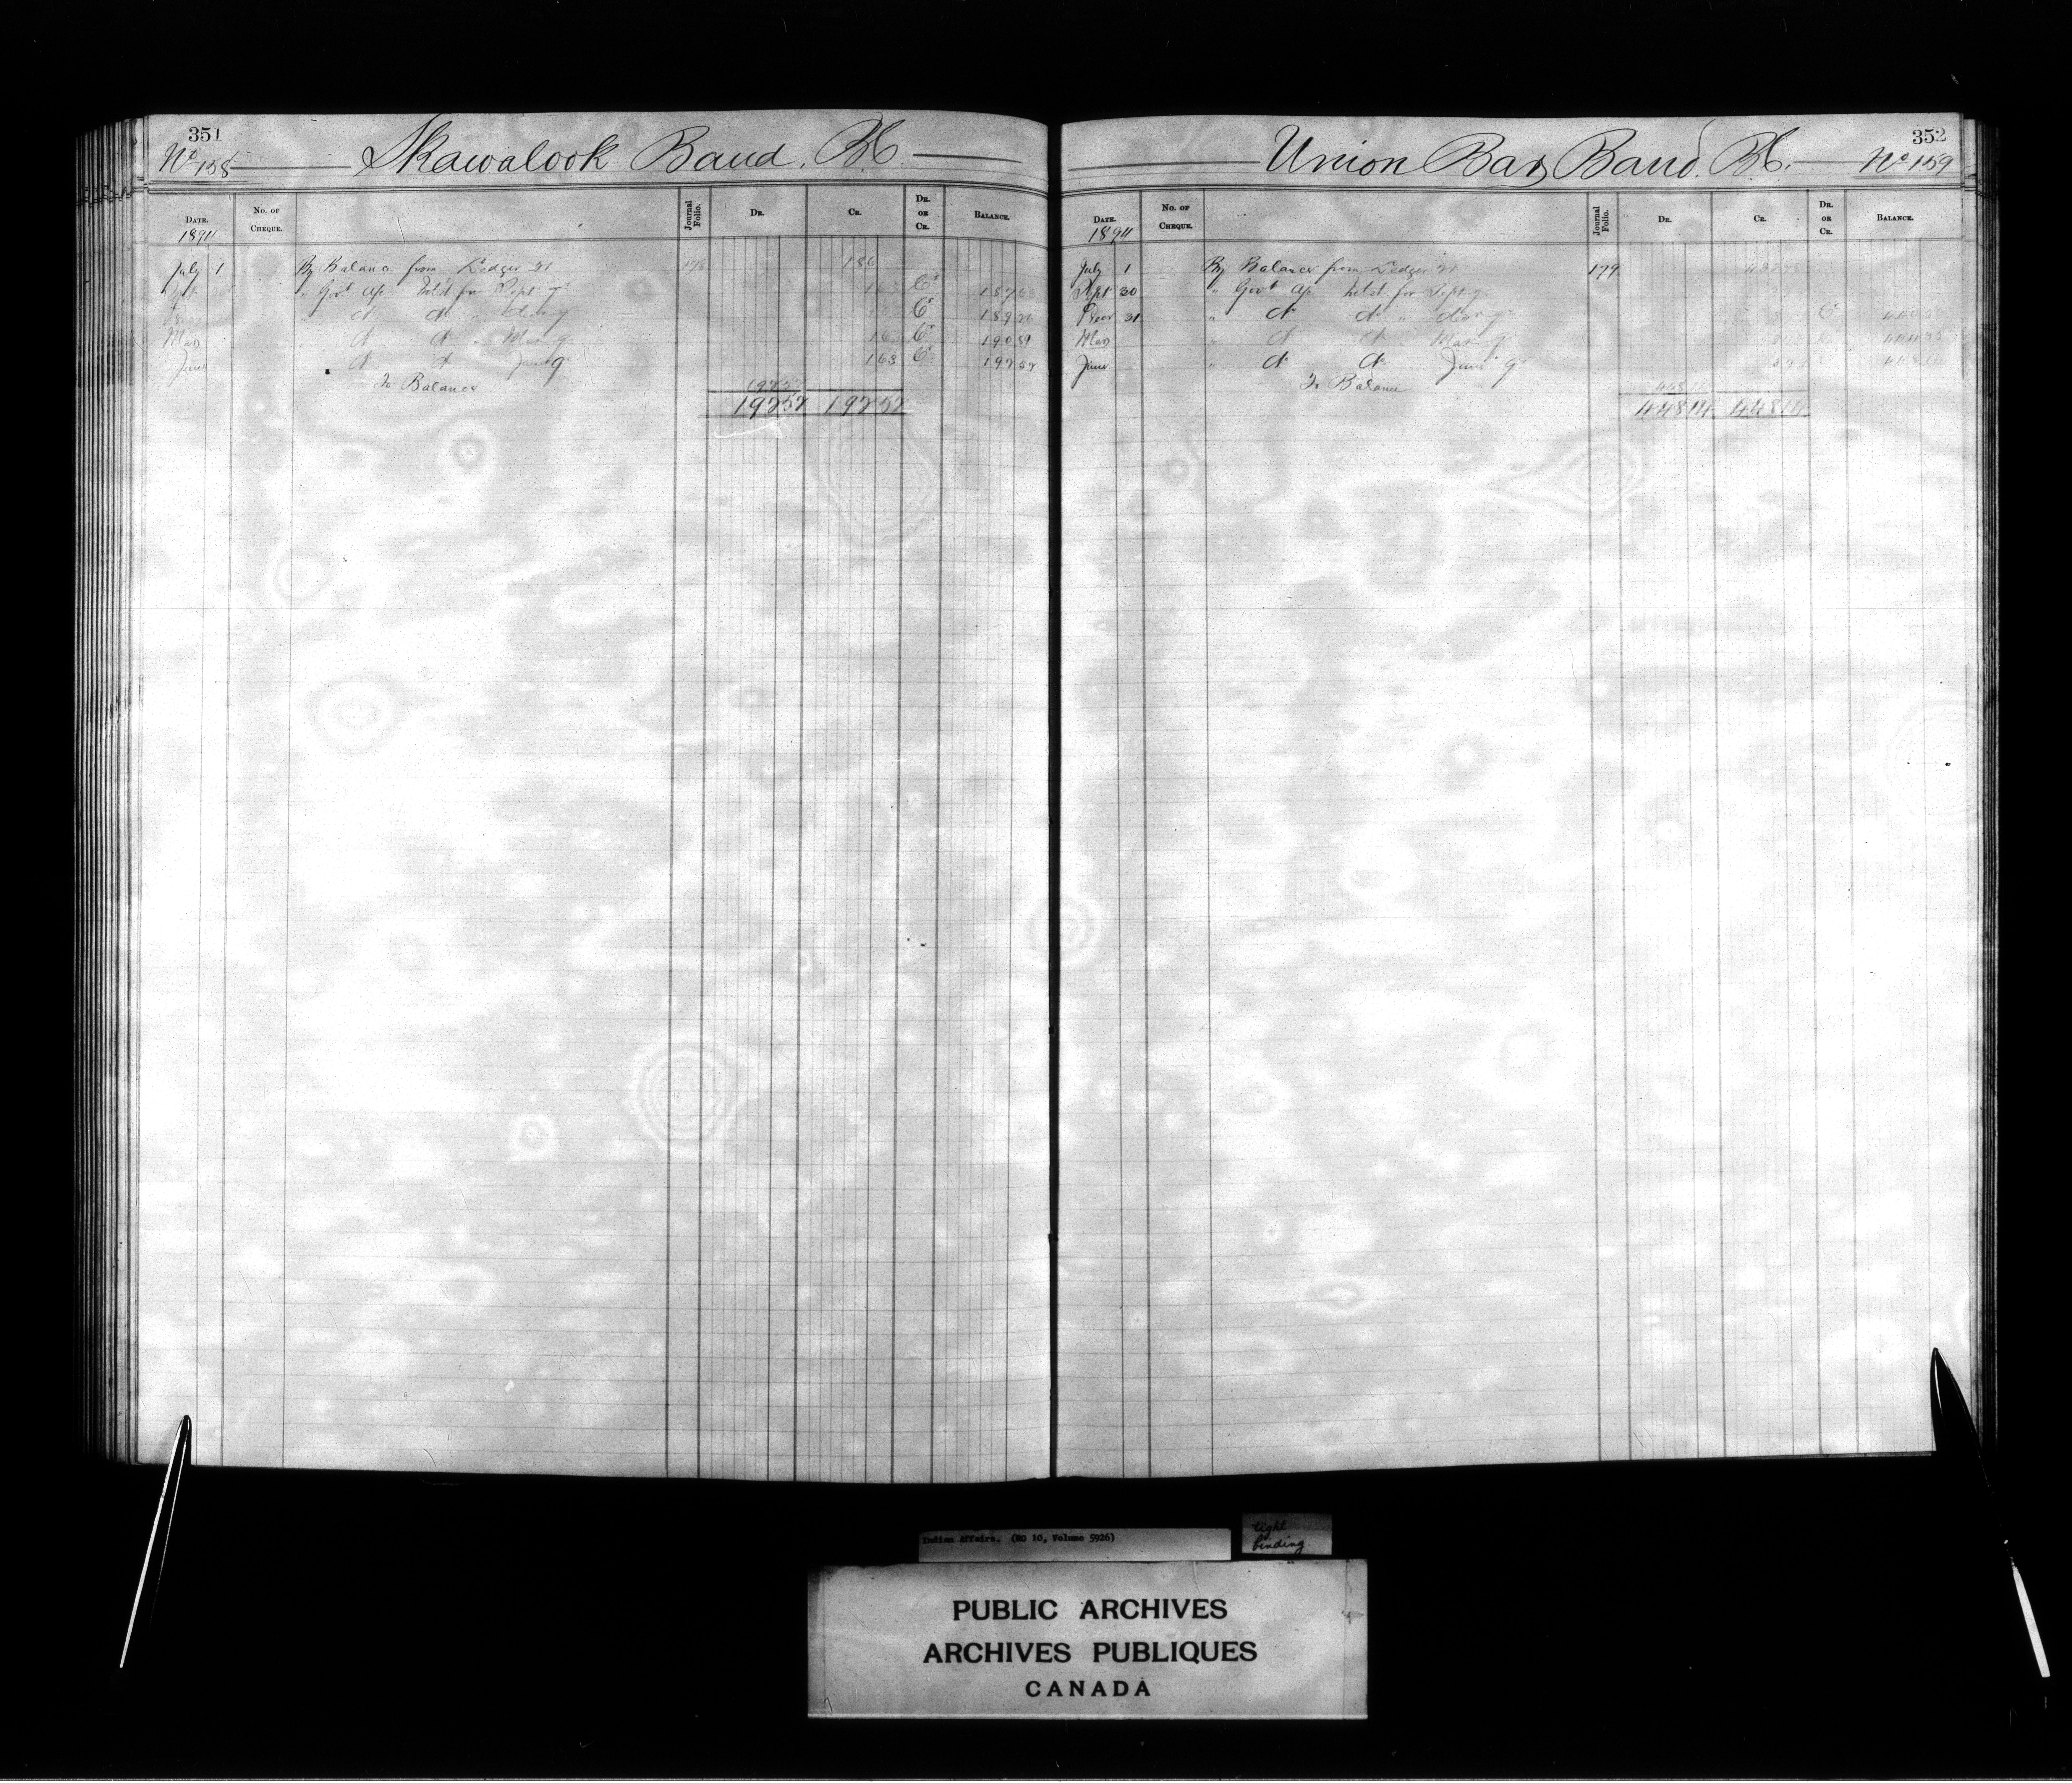 351
No 158 Skawalook Band. BC
DATE. No. OF CHEQUE. Journal Folio. DR. CR. DR. OR CR. BALANCE.
1894
July 1 By Balance from Ledger 21 178 186
" Govt a/c Intst for Sept qr 163 Cr 187 63
" do do " decr qr Cr 189 26
Mar do do " Mar qr 163 Cr 190 89
June do do June qr 163 Cr 192 52
To Balance 192 52
192 52 192 52
352
Union Bar Band. BC. No 159
DATE. No. OF CHEQUE. Journal Folio. DR. CR. DR. OR CR. BALANCE.
1894
July 1 By Balance from Ledger 21 179
Sept 30 " Govt a/c Intst for Sept qr
Decr 31 " do do " decr qr Cr
Mar " do do Mar qr
June " do do June qr
To Balance 448 14
448 14 448 14
Indian Affairs. (RG 10, Volume 5926)
tight
binding
PUBLIC ARCHIVES
ARCHIVES PUBLIQUES
CANADA